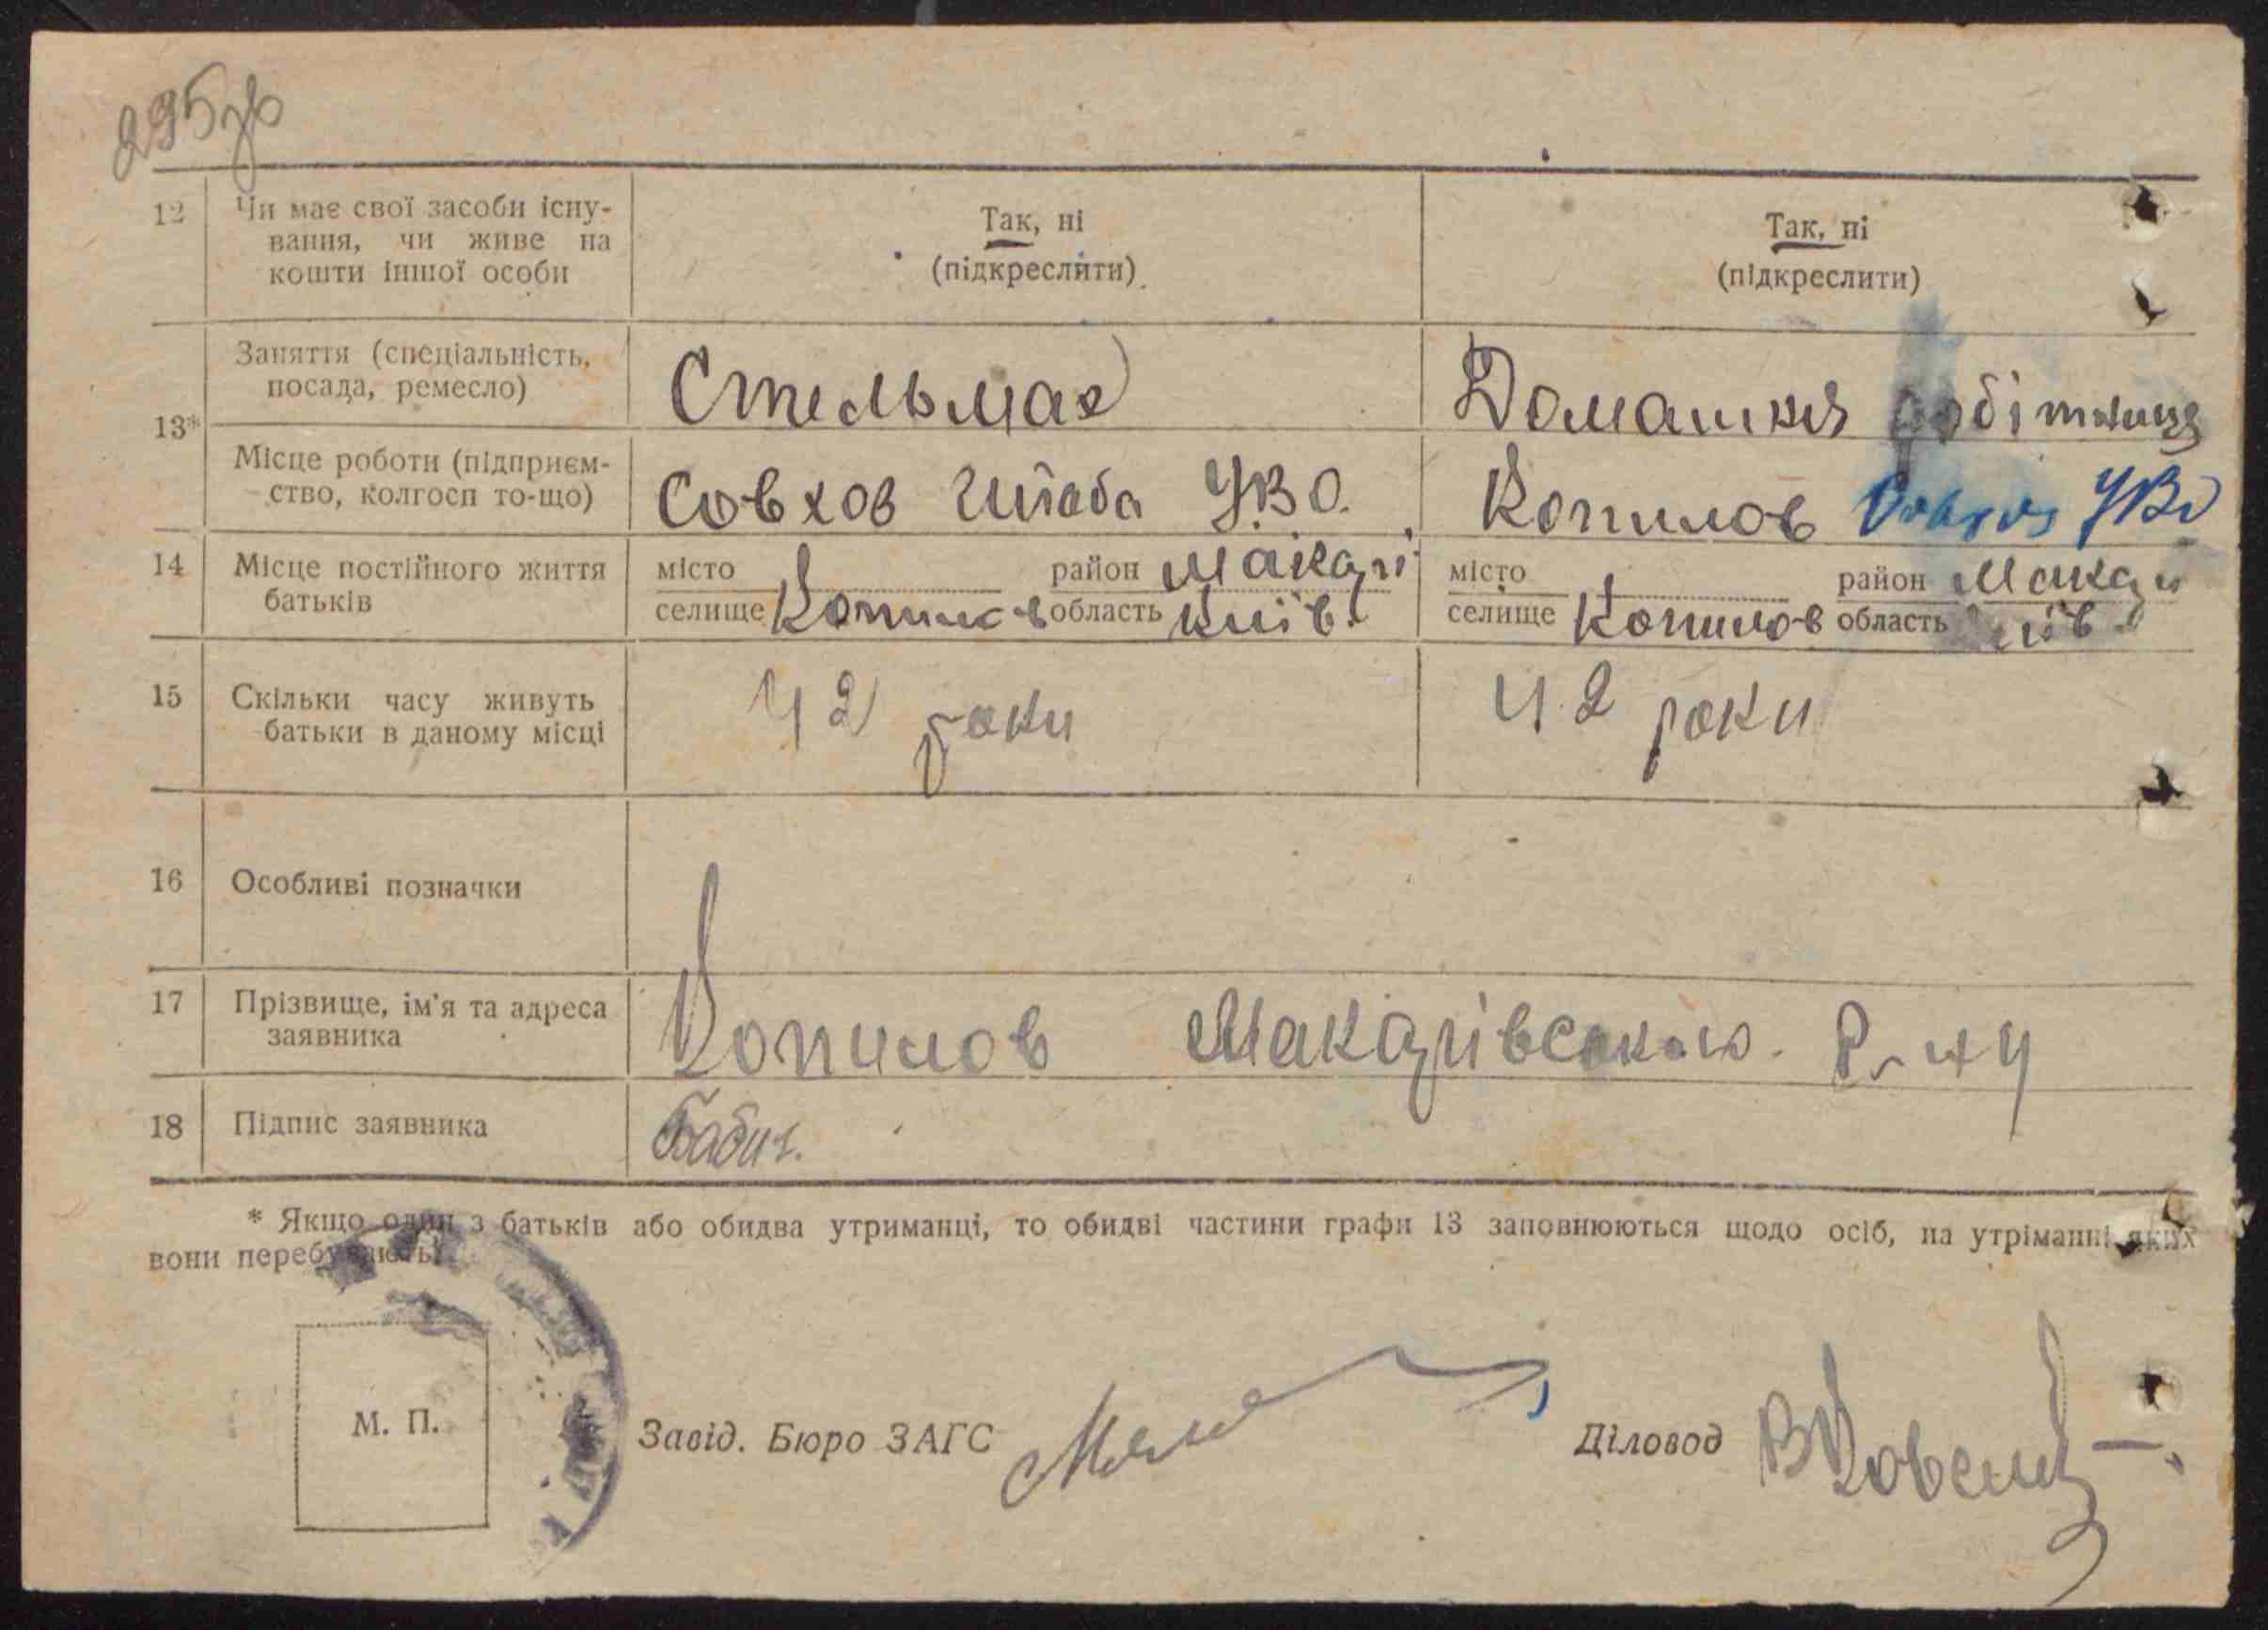 295зв
12 Чи має свої засоби існу-
вання, чи живе на
кошти іншої особи
Так, ні
(підкреслити)
Так, ні
(підкреслити)
13*
Заняття (спеціальність,
посада, ремесло)
Стельмах
Домашня робітниця
Місце роботи (підприєм-
ство, колгосп то-що)
Совхоз Штаба УВО.
Копилов Совхоз УВО
14 Місце постійного життя
батьків
місто район Макарі
селище Копилов область Київ.
місто район Макар
селище Копилов область Київ
15 Скільки часу живуть
батьки в даному місці
42 роки
42 роки
16 Особливі позначки
17 Прізвище, ім'я та адреса
заявника
Копилов Макарівського Р-ну
18 Підпис заявника
Бабич.
* Якщо один з батьків або обидва утриманці, то обидві частини графи 13 заповнюються щодо осіб, на утріманні яких
вони перебувають.
М. П.
Завід. Бюро ЗАГС
Діловод